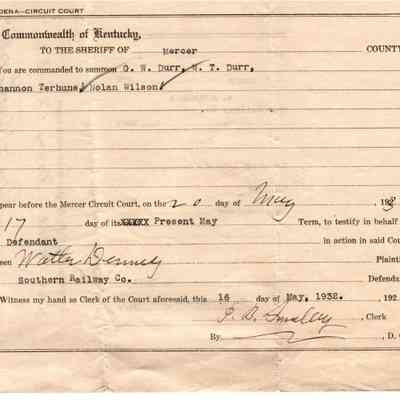 DENA—CIRCUIT COURT
Commonwealth of Kentucky,
TO THE SHERIFF OF Mercer COUNTY
You are commanded to summon G. W. Durr, W. T. Durr,
hannon Terhune, Nolan Wilson
pear before the Mercer Circuit Court, on the 20 day of May 193
17 day of its XXXXX Present May Term, to testify in behalf
Defendant in action in said Cou
een Walter Plaint
Southern Railway Co. Defenda
Witness my hand as Clerk of the Court aforesaid, this 16 day of May, 1932. 192
Clerk
By D. C